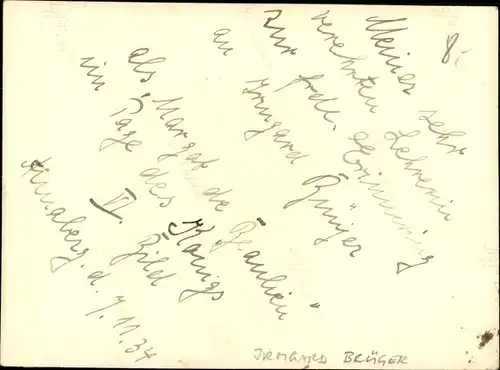 8.
Meiner sehr
verehrten Lehrerin
zur frdl. Erinnerung
an Irmgard Brüger
als „Margot de Beaulieu"
im Tage des Königs
VI. Bild
Annaberg. d. 7.11.34
IRMGARD BRÜGER